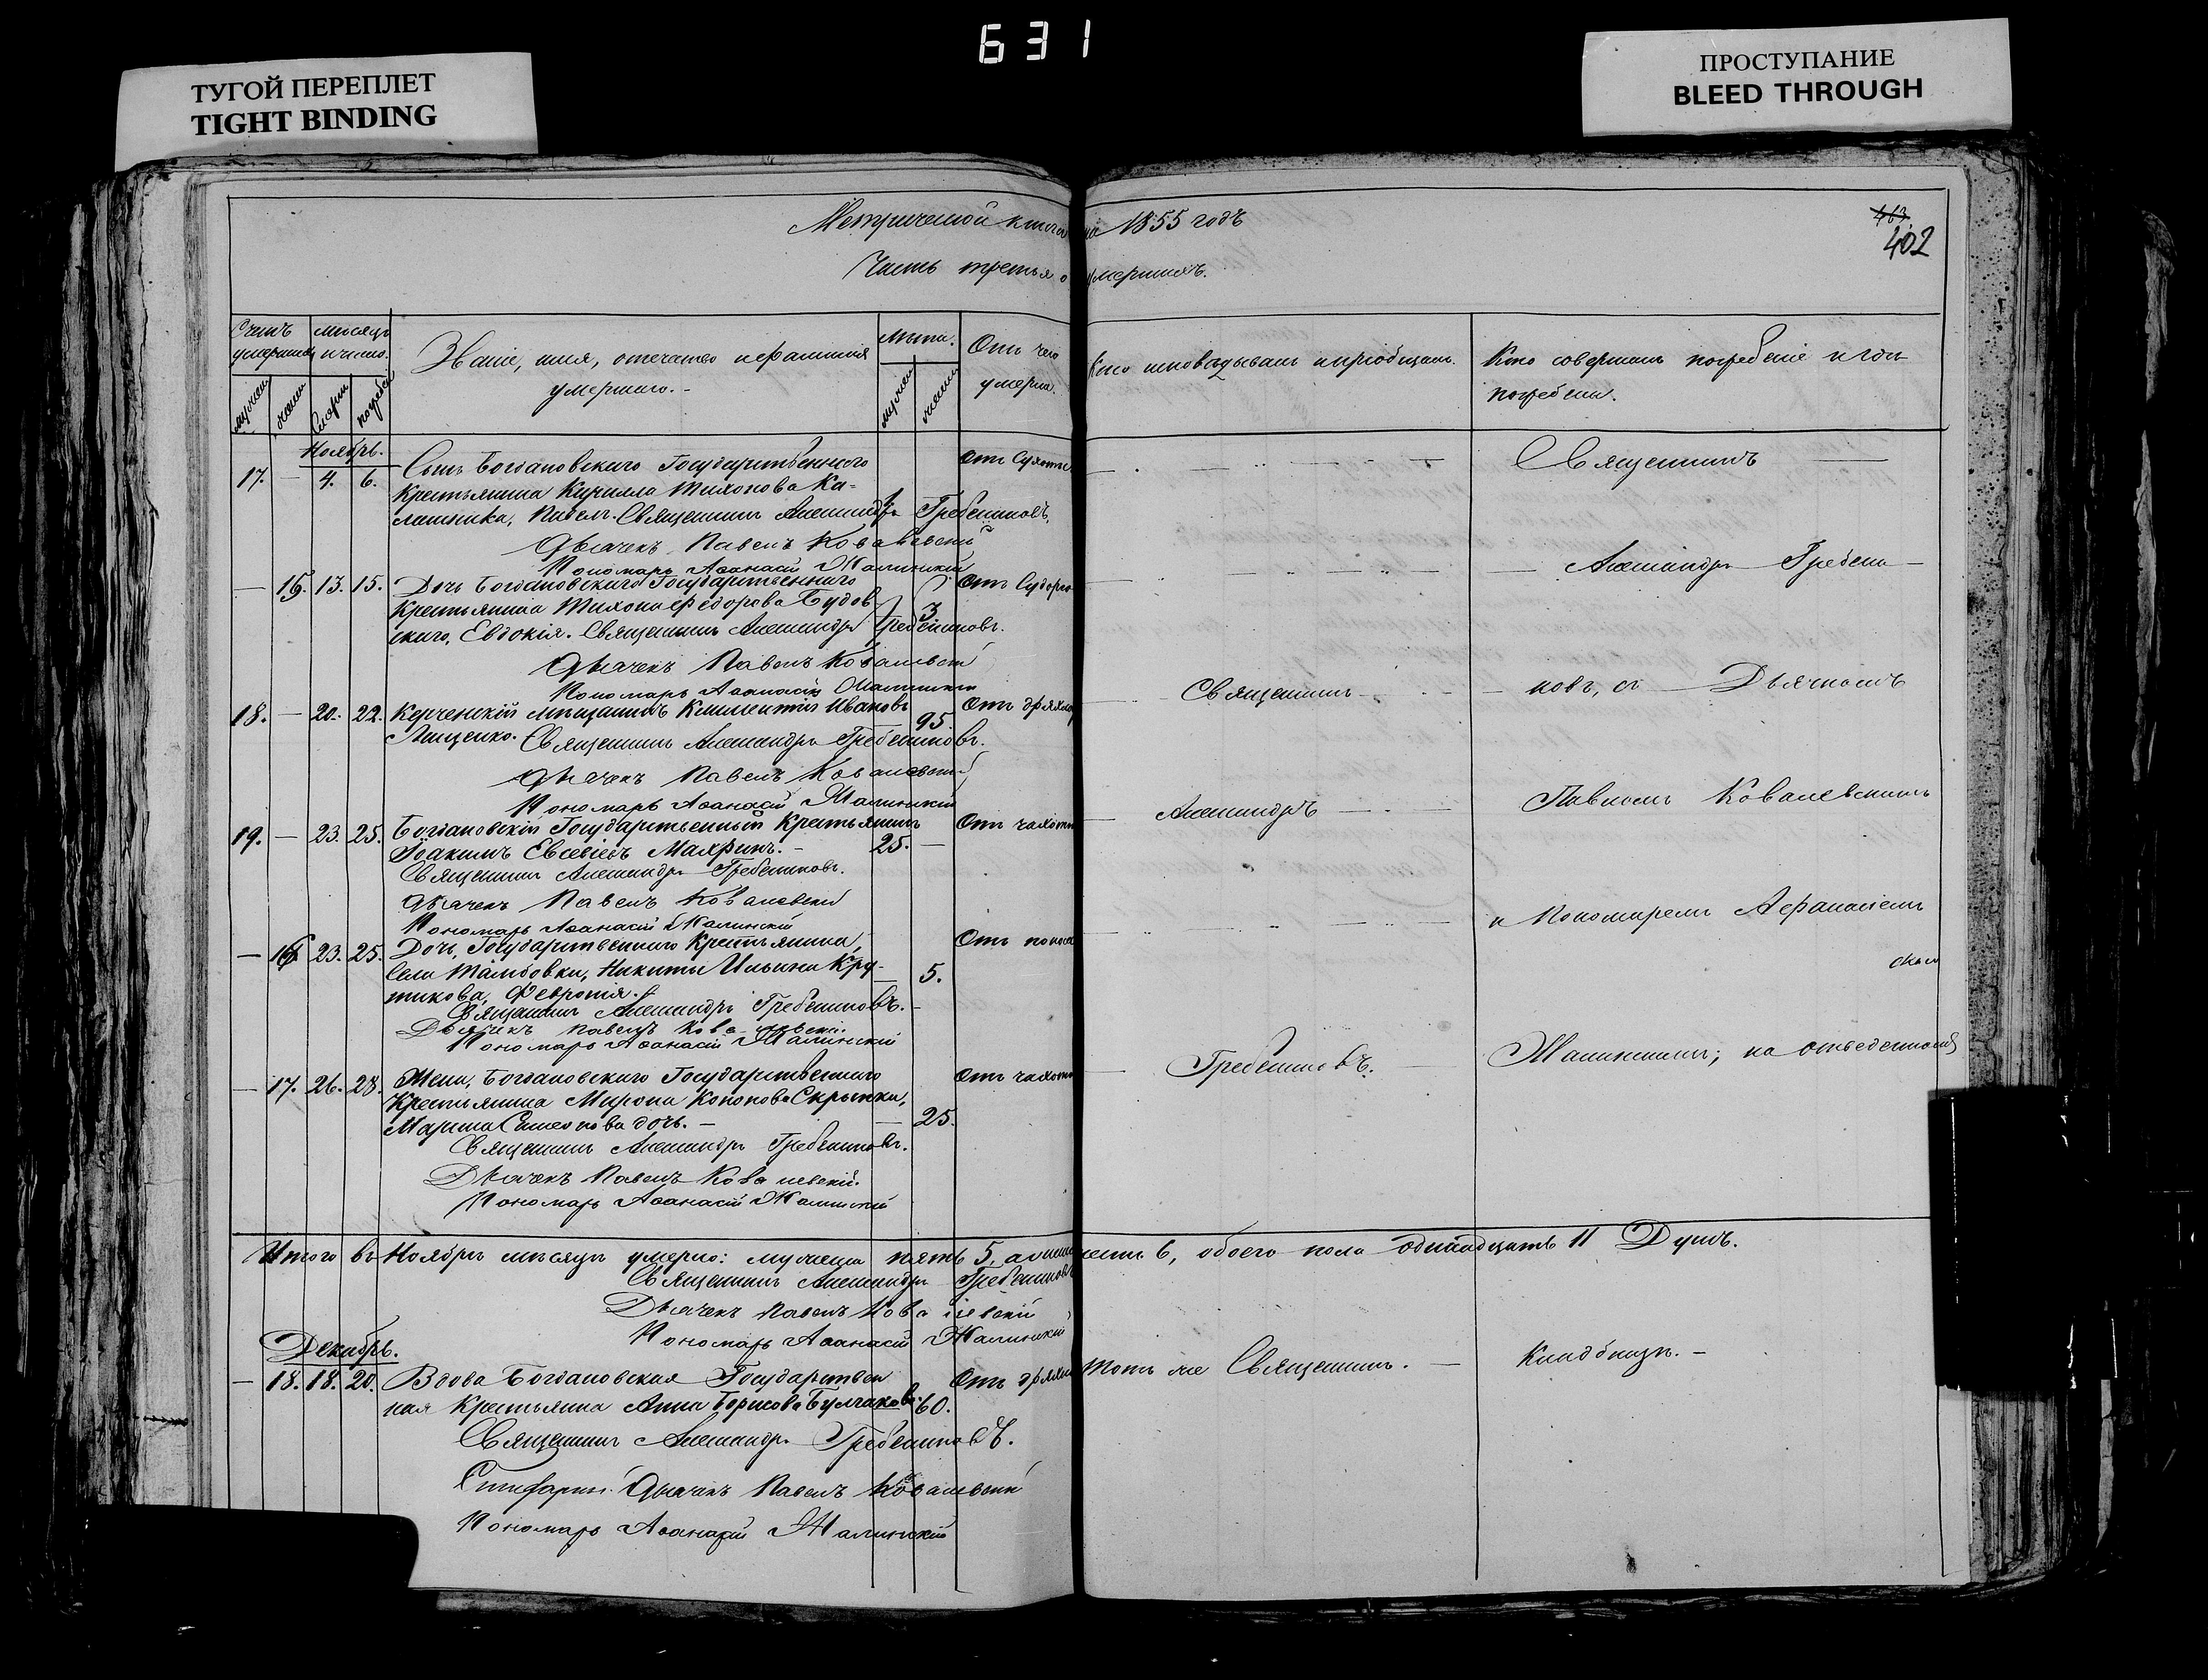 631
ТУГОЙ ПЕРЕПЛЕТ
TIGHT BINDING
ПРОСТУПАНИЕ
BLEED THROUGH
Метрической книги на 1855 годъ
402
Часть третья о умершихъ.
Счетъ умершихъ
мѣсяцъ и число.
Званіе, имя, отчество и фамилія умершаго.-
Лѣта.
Отъ чего умеръ.
Кто исповѣдывалъ и пріобщалъ.
Кто совершалъ погребеніе и гдѣ погребены.
Ноябрь.
17. — 4. 6. Сынъ Богдановскаго Государственнаго
Крестьянина Кирилла Тихонова Ка-
лашника, Павелъ. Священникъ Александръ Гребенниковъ.
Дьячекъ Павелъ Ковалевскій
Пономарь Аѳанасій Малинскій
— 15. 13. 15. Дочь Богдановскаго Государственнаго
Крестьянина Тихона Федорова Будов
скаго, Евдокія. Священникъ Александръ Гребенниковъ.
3
Дьячекъ Павелъ Ковалевскій
Пономарь Аѳанасій Малинскій
18. — 20. 22. Керченскій мѣщанинъ Климентій Ивановъ
95.
Лищенко. Священникъ Александръ Гребенниковъ.
Дьячекъ Павелъ Ковалевскій
Пономарь Аѳанасій Малинскій
19. — 23. 25. Богдановскій Государственный Крестьянинъ
Іоакимъ Евсевіевъ Махринъ. — 25. —
Священникъ Александръ Гребенниковъ.
Дьячекъ Павелъ Ковалевскій
Пономарь Аѳанасій Малинскій
— 16 23. 25. Дочь, Государственнаго Крестьянина,
села Тамбовки, Никиты Ильина Кру-
тикова, Февронія. — 5.
Священникъ Александръ Гребенниковъ.
Дьячекъ Павелъ Ковалевскій.
Пономарь Аѳанасій Малинскій
— 17. 26. 28. Жена, Богдановскаго Государственнаго
Крестьянина Мирона Кононова Скрынки,
Марина Симеонова дочь. — 25.
Священникъ Александръ Гребенниковъ.
Дьячекъ Павелъ Ковалевскій.
Пономарь Аѳанасій Малинскій
Отъ Сухоты
Отъ Судорог
Отъ дряхлос
Отъ чахотки
Отъ поноса
Отъ чахотки
Священникъ
Александръ
Гребенниковъ.
Священникъ
Александръ Гребенни-
ковъ, съ Дьячкомъ
Павломъ Ковалевскимъ
и Пономаремъ Афанасіемъ
Малинскимъ; на отведенномъ
Итого въ Ноябрѣ мѣсяцѣ умерло: мужеска пять 5, а женска шесть 6, обоего пола одинадцать 11 Душъ.
Священникъ Александръ Гребенниковъ
Дьячекъ Павелъ Ковалевскій
Пономарь Аѳанасій Малинскій
Декабрь.
— 18. 18. 20. Вдова Богдановская Государствен
ная Крестьянка Анна Борисова Булгакова 60.
Отъ дряхл
Тотъ же Священникъ. —
Кладбищѣ. —
Священникъ Александръ Гребенниковъ.
Дьячекъ Павелъ Ковалевскій
Пономарь Аѳанасій Малинскій